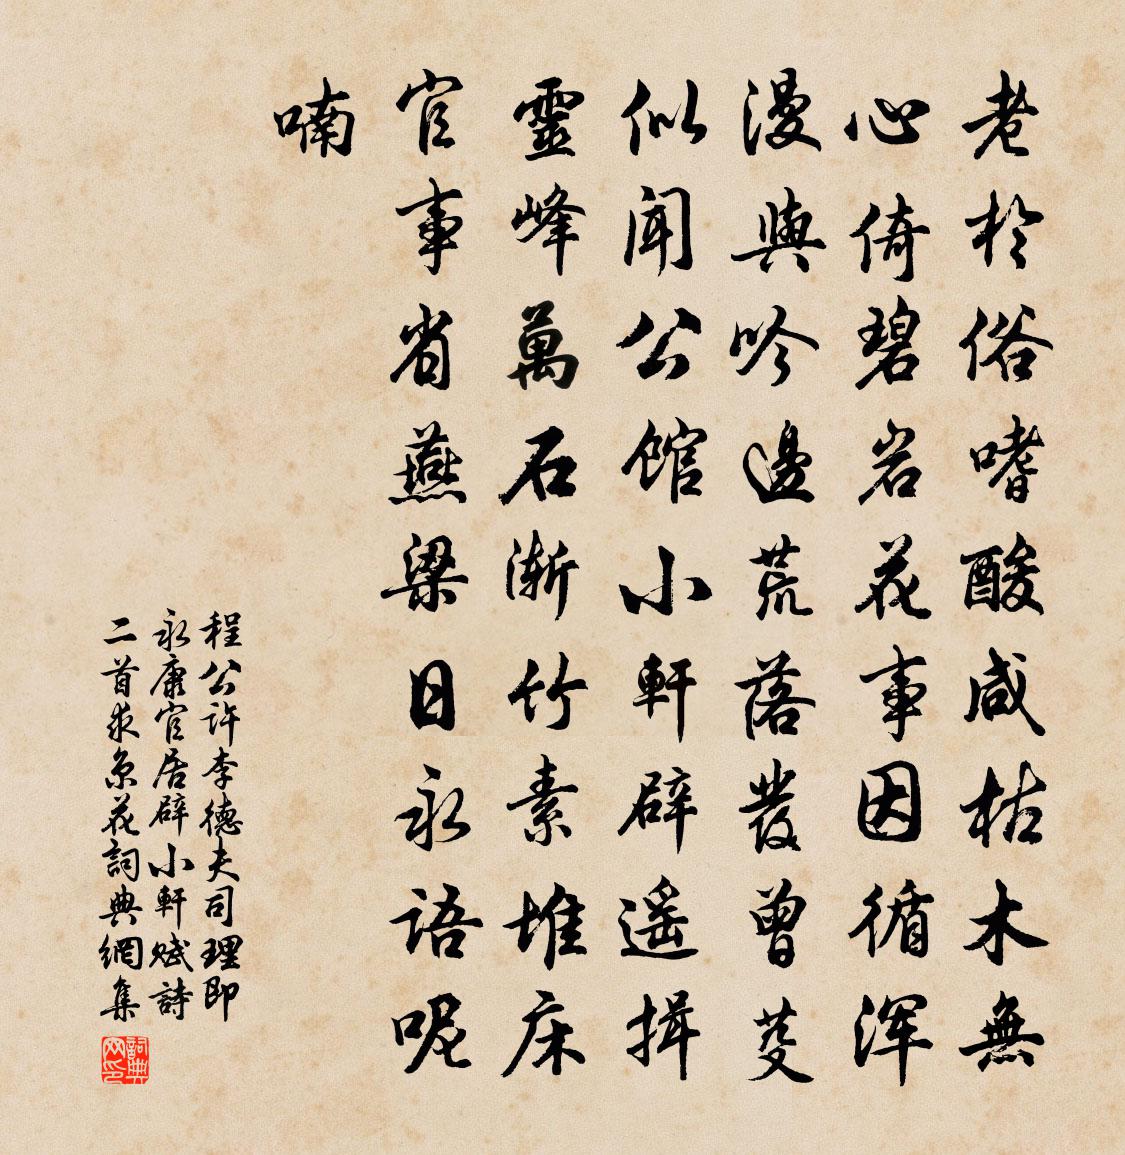 老於俗嗜酸咸枯木無
心倚碧岩花事因循渾
漫與吟邊荒落發曾芟
似聞公館小軒辟遥揖
靈峰萬石漸竹素堆床
官事省燕梁日永語呢
喃
程公許李德夫司理即
永康官居辟小軒賦詩
二首求原花詞典網集
詞典网印